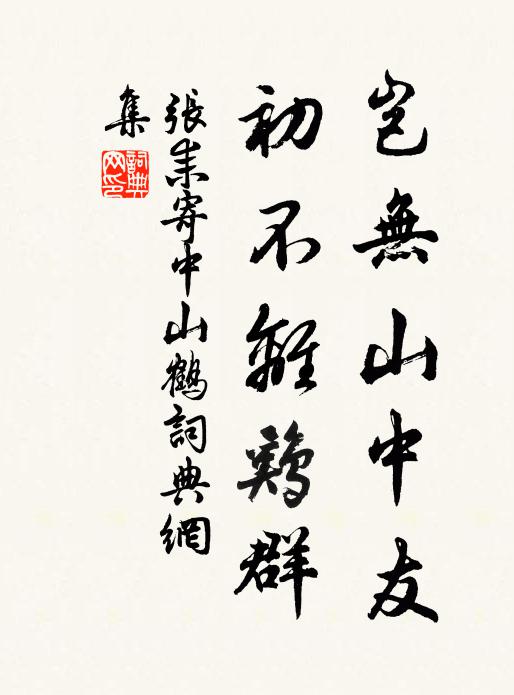 豈無山中友
初不離鷄群
張耒寄中山鶴詞典網
集
詞典
网印